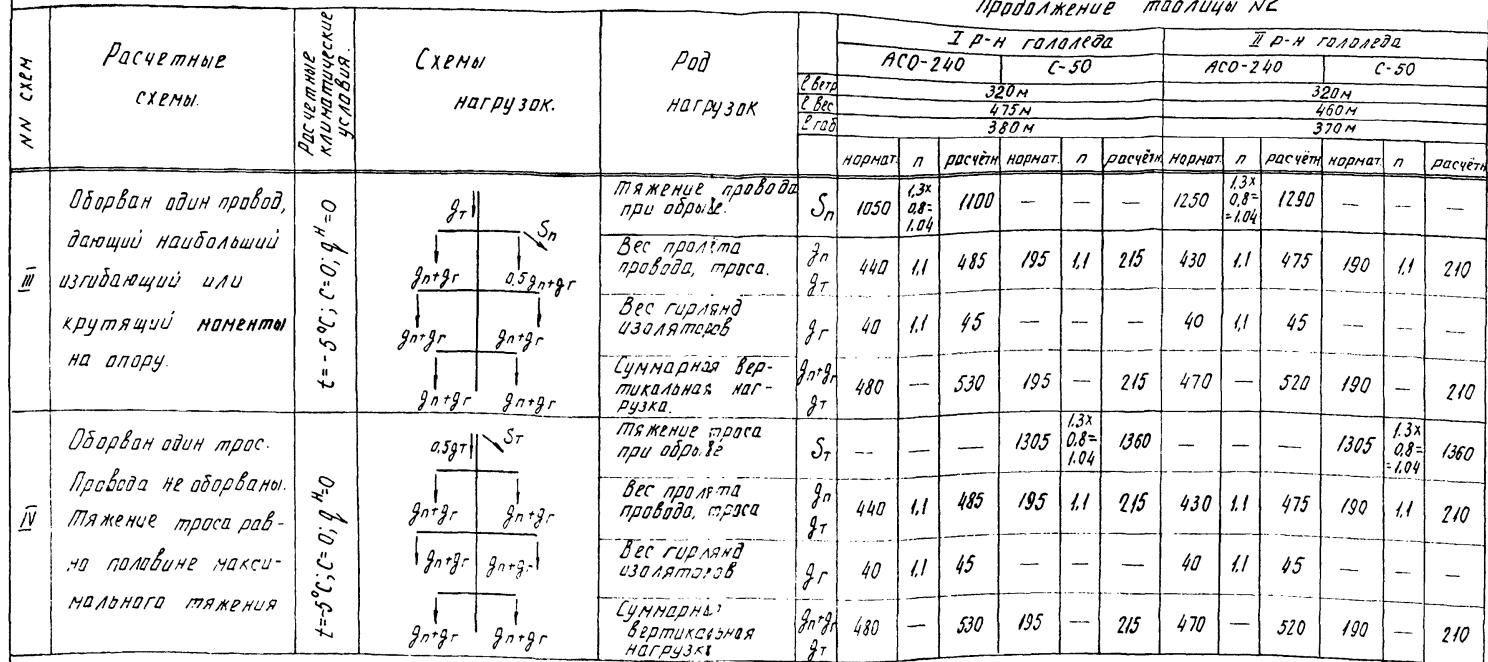 Продолжение таблицы №2
NN СХЕМ
Расчетные схемы.
Расчетные климатические условия.
Схемы нагрузок.
Род нагрузок
I р-н гололеда
II р-н гололеда
АСО-240
С-50
АСО-240
С-50
ℓ ветр
320м
320м
ℓ вес
475м
460м
ℓ габ
380м
370м
нормат. n расчётн нормат. n расчётн нормат. n расчётн нормат. n расчётн
III
Оборван один провод,
дающий наибольший
изгибающий или
крутящий моменты
на опору.
t=-5°C; C=0; q^н=0
gт
Sп
gп+gг 0.5gп+gг
gп+gг gп+gг
gп+gг gп+gг
Тяжение провода при обрыве. Sп 1050 1,3х0,8=1.04 1100 — — — 1250 1.3х0,8==1.04 1290 — — —
Вес пролёта провода, троса. gп gт 440 1,1 485 195 1,1 215 430 1.1 475 190 1,1 210
Вес гирлянд изоляторов gг 40 1,1 45 — — — 40 1,1 45 — — —
Суммарная вертикальная нагрузка. gп+gг gт 480 — 530 195 — 215 470 — 520 190 — 210
IV
Оборван один трос.
Провода не оборваны.
Тяжение троса рав-
но половине макси-
мального тяжения
t=-5°C; C=0; q^н=0
0.5gт Sт
gп+gг gп+gг
gп+gг gп+gг
gп+gг gп+gг
Тяжение троса при обрыве Sт -- — — 1305 1.3х0,8=1.04 1360 — — — 1305 1.3х0,8==1.04 1360
Вес пролета провода, троса gп gт 440 1.1 485 195 1.1 215 430 1.1 475 190 1.1 210
Вес гирлянд изоляторов gг 40 1.1 45 — — — 40 1.1 45 — — —
Суммарная вертикальная нагрузка gп+gг gт 480 — 530 195 — 215 470 — 520 190 — 210